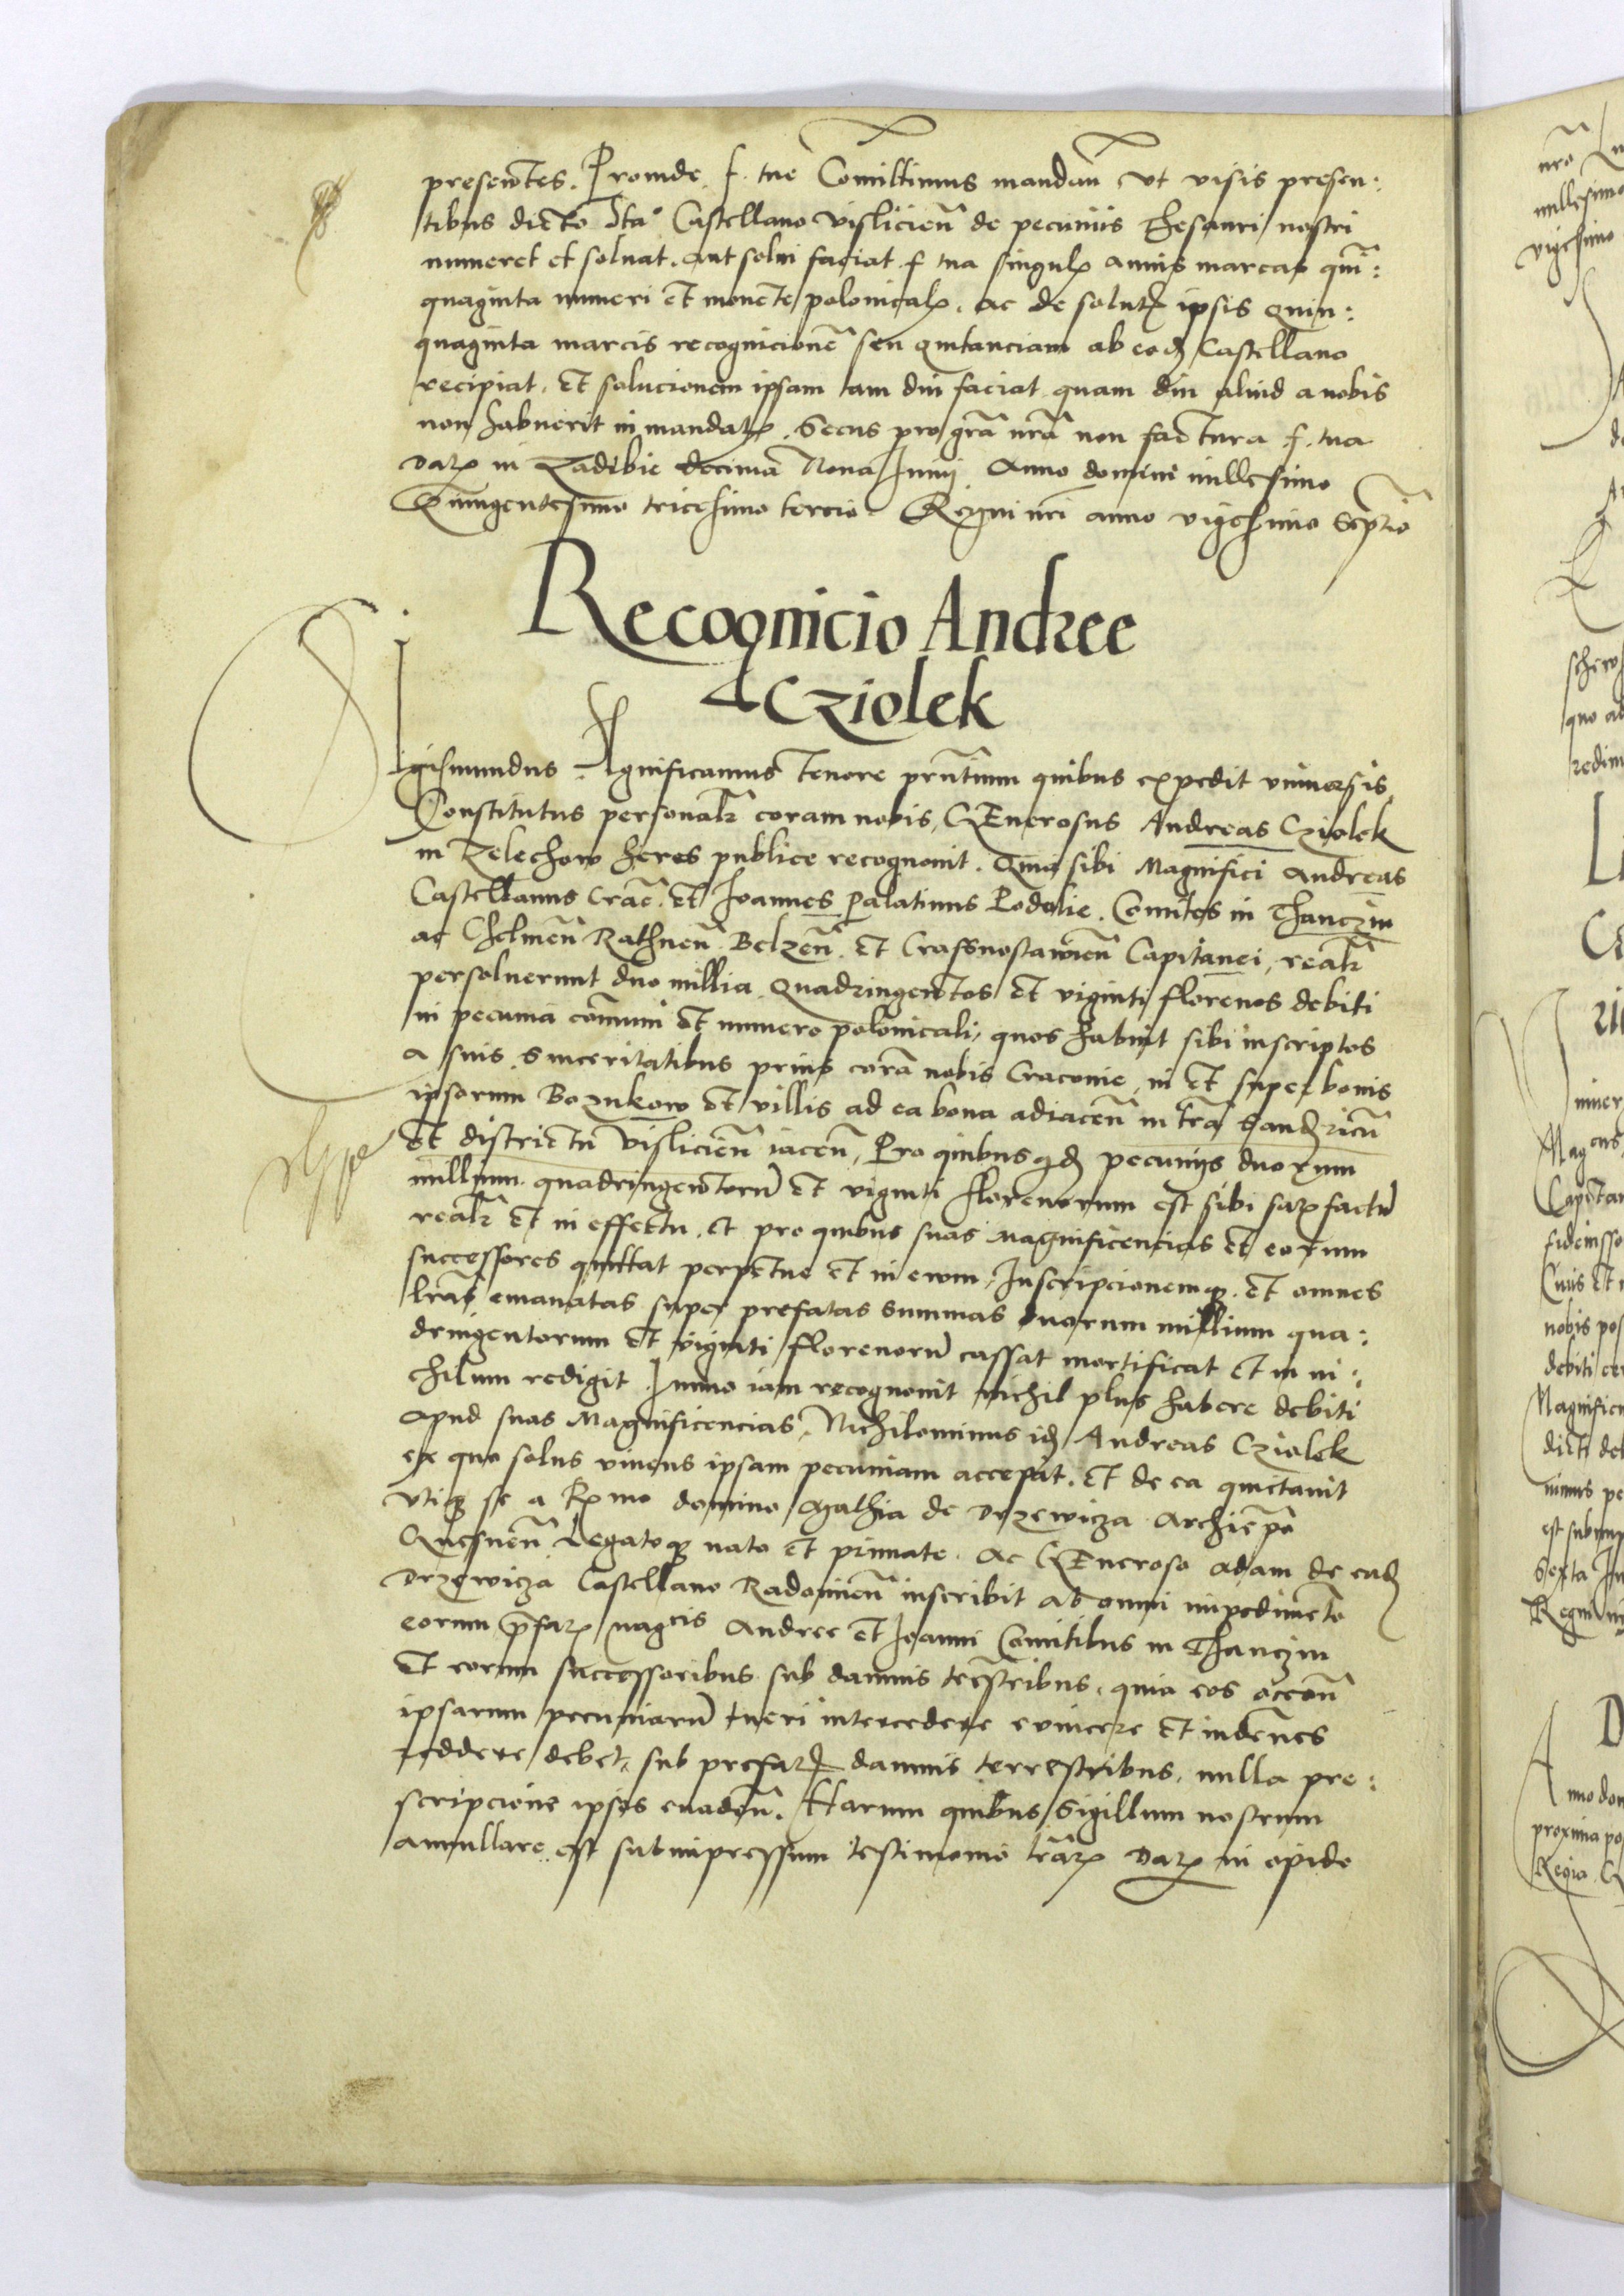 presentes. Proinde f. tue Comittimus mandañ vt visis presen:
tibus dicto Ita° Castellano Visliciеñ de pecuniis Thesauri nostri
numeret et soluat. aut solui faciat f tua singul annis marcas quī:
quaginta numeri et monete polonical. ac de solut ipsis quin:
quaginta marcis recognicionē seu quitanciam ab eod Castellano
recipiat. Et solucionem ipsam tam diu faciat quam diu aliud a nobis
non habuerit in mandat. Secus pro grā nrā non factura f. tua
Dat in decima Nona Junij Anno domini millesimo
Quingentesimo tricesimo tercio. Regni nri anno vigesimo Septīo
Recognicio Andree
Cziolek
Sigismundus Significamus tenore prntium quibus expedit vniuersis
Constitutus personalr coram nobis, GEnerosus Andreas Cziolek
in Zelechow heres publice recognouit. Quia sibi Magnifici Andreas
Castellanus Crac̄. et Joannes Palatinus Podolie. Comites in Thanczin
ac Chelmeñ Rathneñ Belzeñ. et Crassnostawieñ Capitanei, realr
persoluerunt duo millia Quadringentos et viginti florenos debiti
in pecunia cōmuni et numero polonicali, quos habuit sibi inscriptos
a suis sinceritatibus prius corā nobis Craconie, in et super bonis
ipsorum Bozukow et villis ad ea bona adiaceñ in trā
et districtu Visliciеñ iaceñ, Pro quibus qd pecunijs duorum
millium quadringentorū et viginti florenorum est sibi sat factū
realr et in effectu, et pro quibus suas magnificencias et eorum
successores quittat perpetue et in ewm, Inscripcionemq et omnes
lrās emanatas super prefatas summas duorum millium qua:
dringentorum et viginti florenorū cassat mortificat et in ni:
chilum redigit Immo iam recognouit nichil plus habere debiti
apud suas Magnificencias, Nichilominus id Andreas Cziolek
ex quo solus viuens ipsam pecuniam accepit. et de ea quictauit
vtiq se a Rmo domino Mathia de Drzewicza Archiepō
Gnesneñ Legatoq nato et primate. Ac GEneroso Adam de ead
Drzewicza Castellano Radomieñ inscribit ab omni impedimēto
eorum prefat magcis Andree et Joanni Comitibus in Thanczin
et eorum successoribus sub damnis terrestribus, quia eos
ipsarum pecuniarū tueri intercedere euincere et indēnes
reddere debet, sub prefat damnis terrestribus, nulla pre:
scripcione ipsos euadeñ. Harum quibus Sigillum nostrum
annullare est subimpressum testimonio lrār Dat in opido